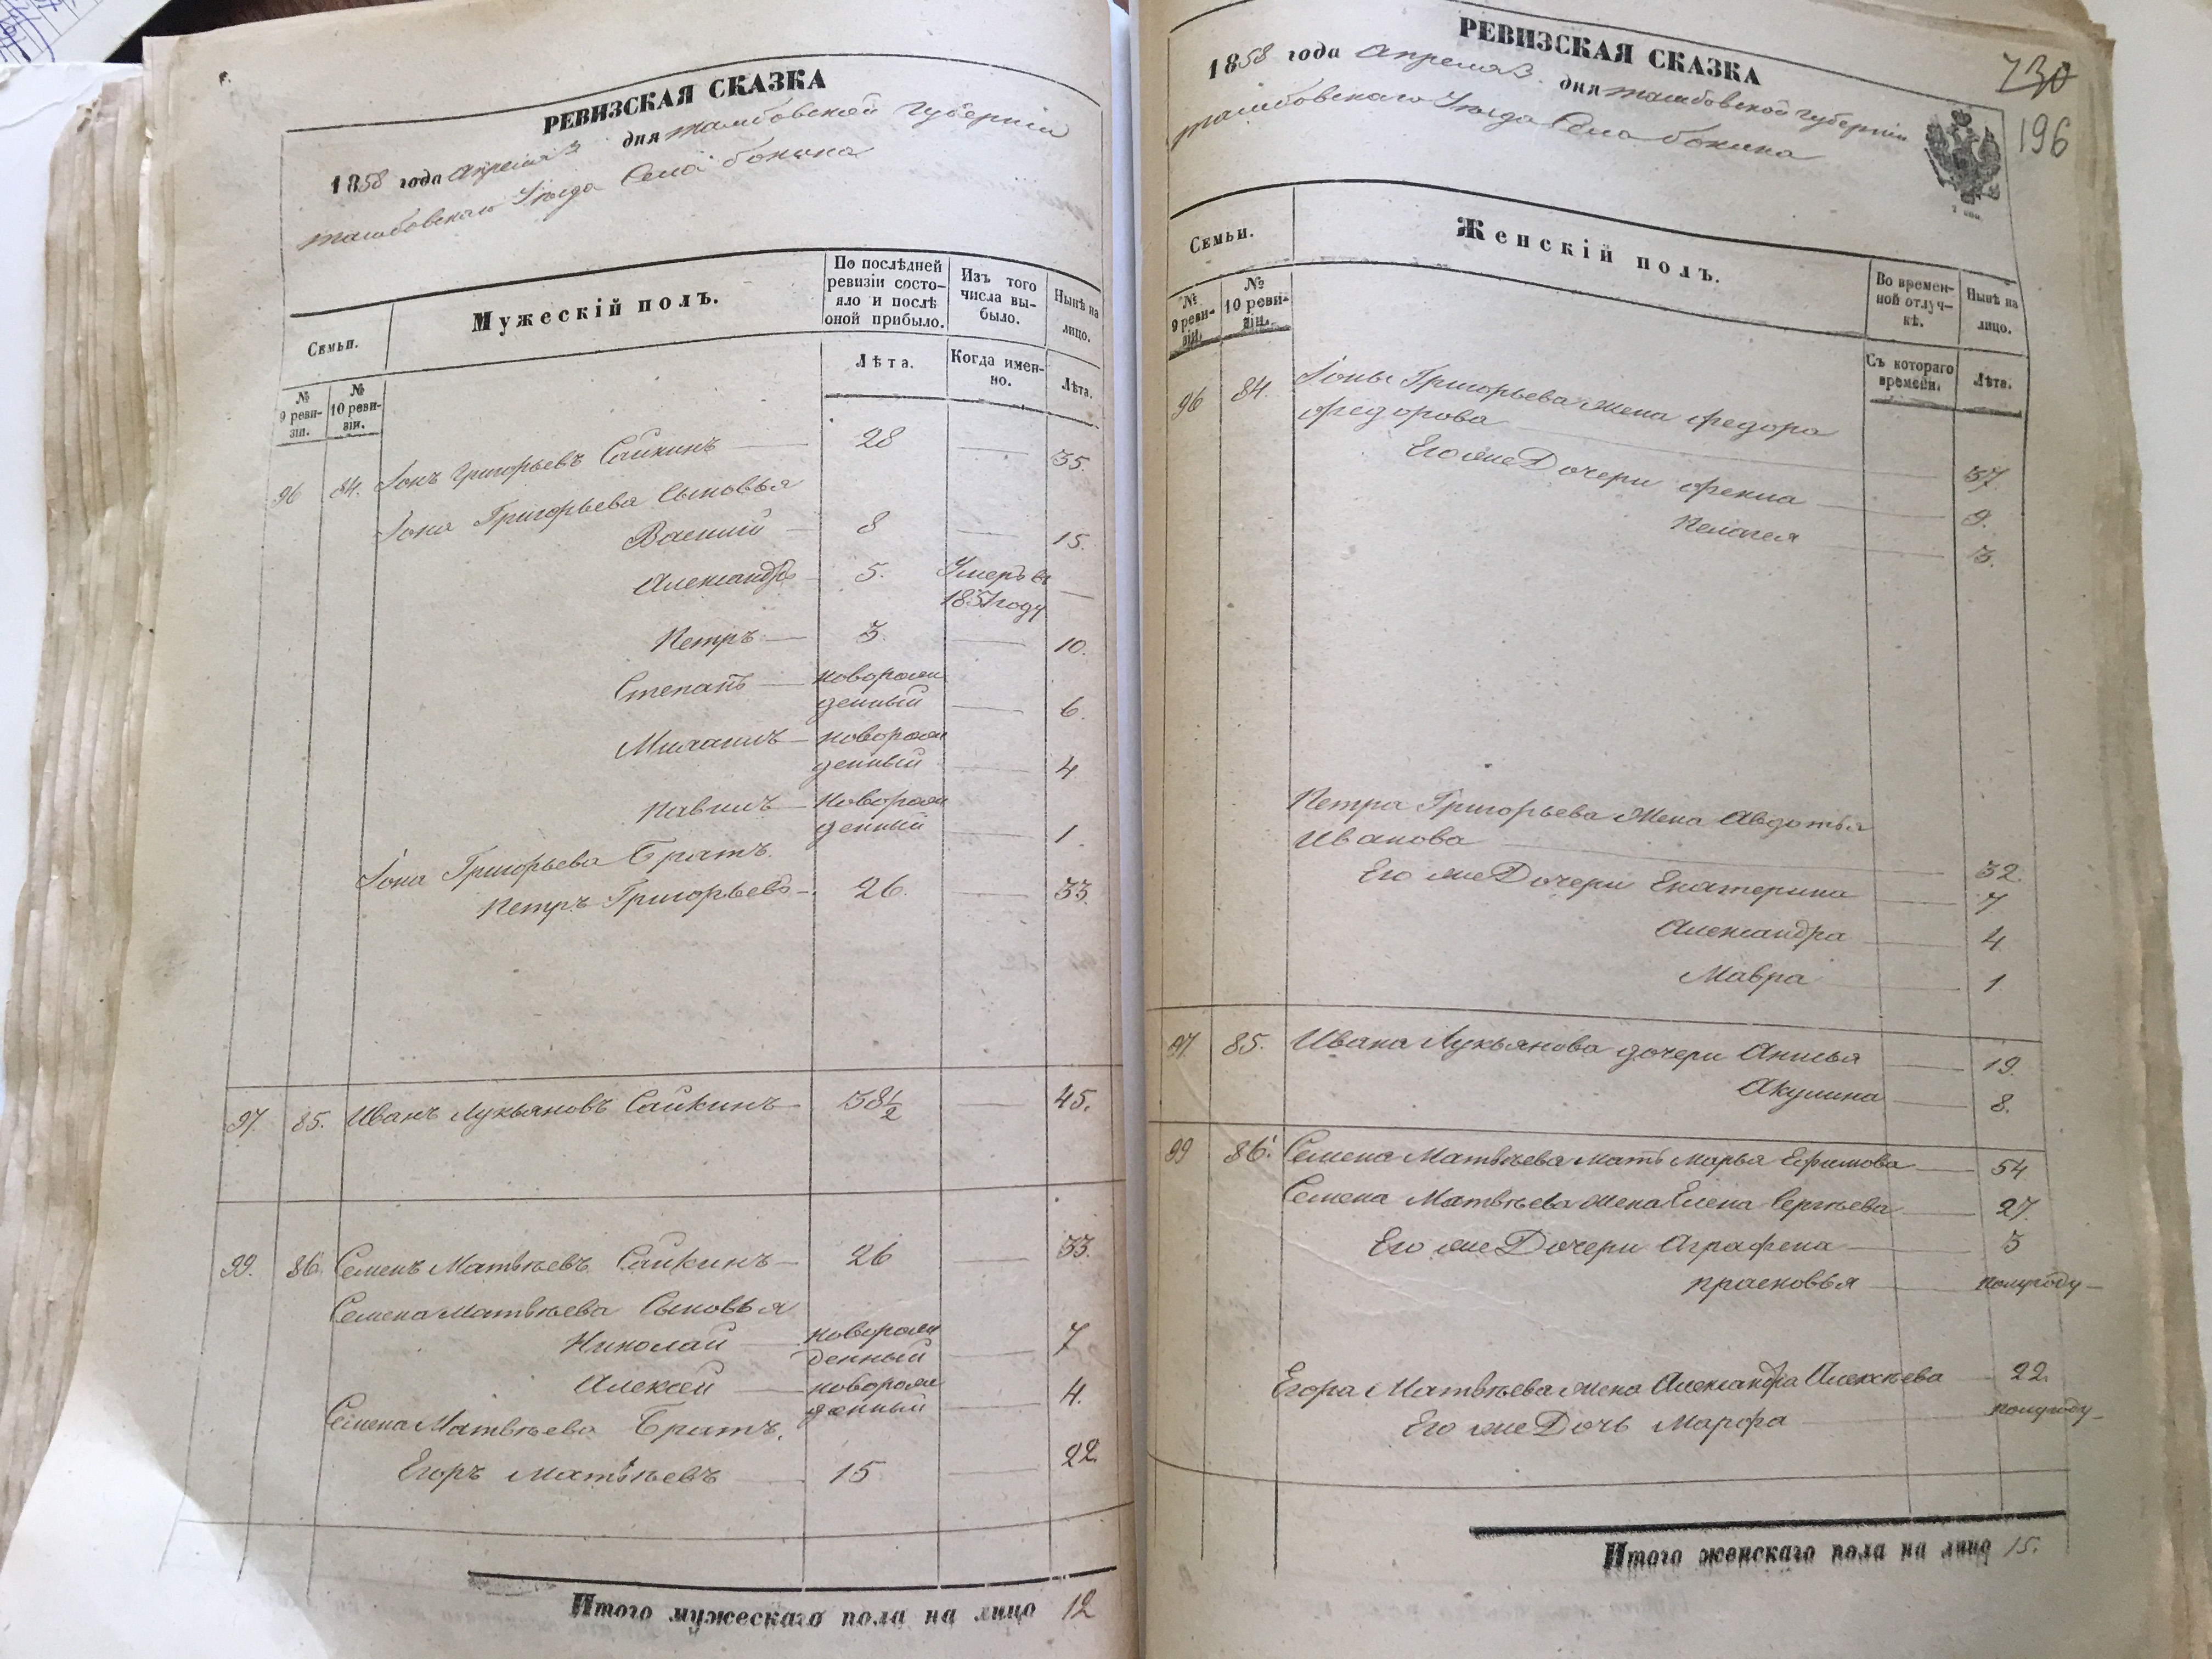 РЕВИЗСКАЯ СКАЗКА
1858 года Апреля 3 дня Тамбовской Губернии
Тамбовскаго Уѣзда Села Бокина
Семьи.
Мужескій полъ.
По послѣдней ревизіи состояло и послѣ оной прибыло.
Изъ того числа выбыло.
Нынѣ на лицо.
№ 9 ревизіи.
№ 10 ревизіи.
Лѣта.
Когда именно.
Лѣта.
96 84. Іонъ Григорьевъ Сайкинъ 28 35.
Іона Григорьева Сыновья
Василій 8 15.
Александръ 5. Умеръ въ
1857 году
Петръ 3. 10.
Степанъ новорож
денный 6.
Михаилъ новорож
денный 4
Павилъ новорож
денный 1.
Іона Григорьева Братъ
Петръ Григорьевъ 26. 33.
97. 85. Иванъ Лукьяновъ Сайкинъ 38½ 45.
99. 86. Семенъ Матвѣевъ Сайкинъ 26 33.
Семена Матвѣева Сыновья
Николай новорож
денный 7
Алексей новорож
денный 4.
Семена Матвѣева Братъ,
Егоръ Матвѣевъ 15 22
Итого мужескаго пола на лицо 12
РЕВИЗСКАЯ СКАЗКА
230
196
1858 года Апреля 3. дня Тамбовской Губернии
Тамбовскаго Уѣзда Села Бокина
Семьи.
Женскій полъ.
Во временной отлучкѣ.
Нынѣ на лицо.
№ 9 ревизіи.
№ 10 ревизіи.
Съ котораго времени.
Лѣта.
96 84. Іоны Григорьева жена Федора
Федорова 37.
Его же Дочери Фекла 9.
Пелагея 3.
Петра Григорьева Жена Авдотья
Иванова 32.
Его же Дочери Екатерина 7
Александра 4
Мавра 1
97. 85. Ивана Лукьянова дочери Анисья 19.
Акулина 8.
99 86. Семена Матвѣева Мать Марья Ефимова 54
Семена Матвѣева жена Елена Сергѣева 27.
Его же Дочери Аграфена 3
Прасковья полугоду
Егора Матвѣева жена Александра Алексѣева 22.
Его же Дочь Марфа полугоду
Итого женскаго пола на лицо 15.